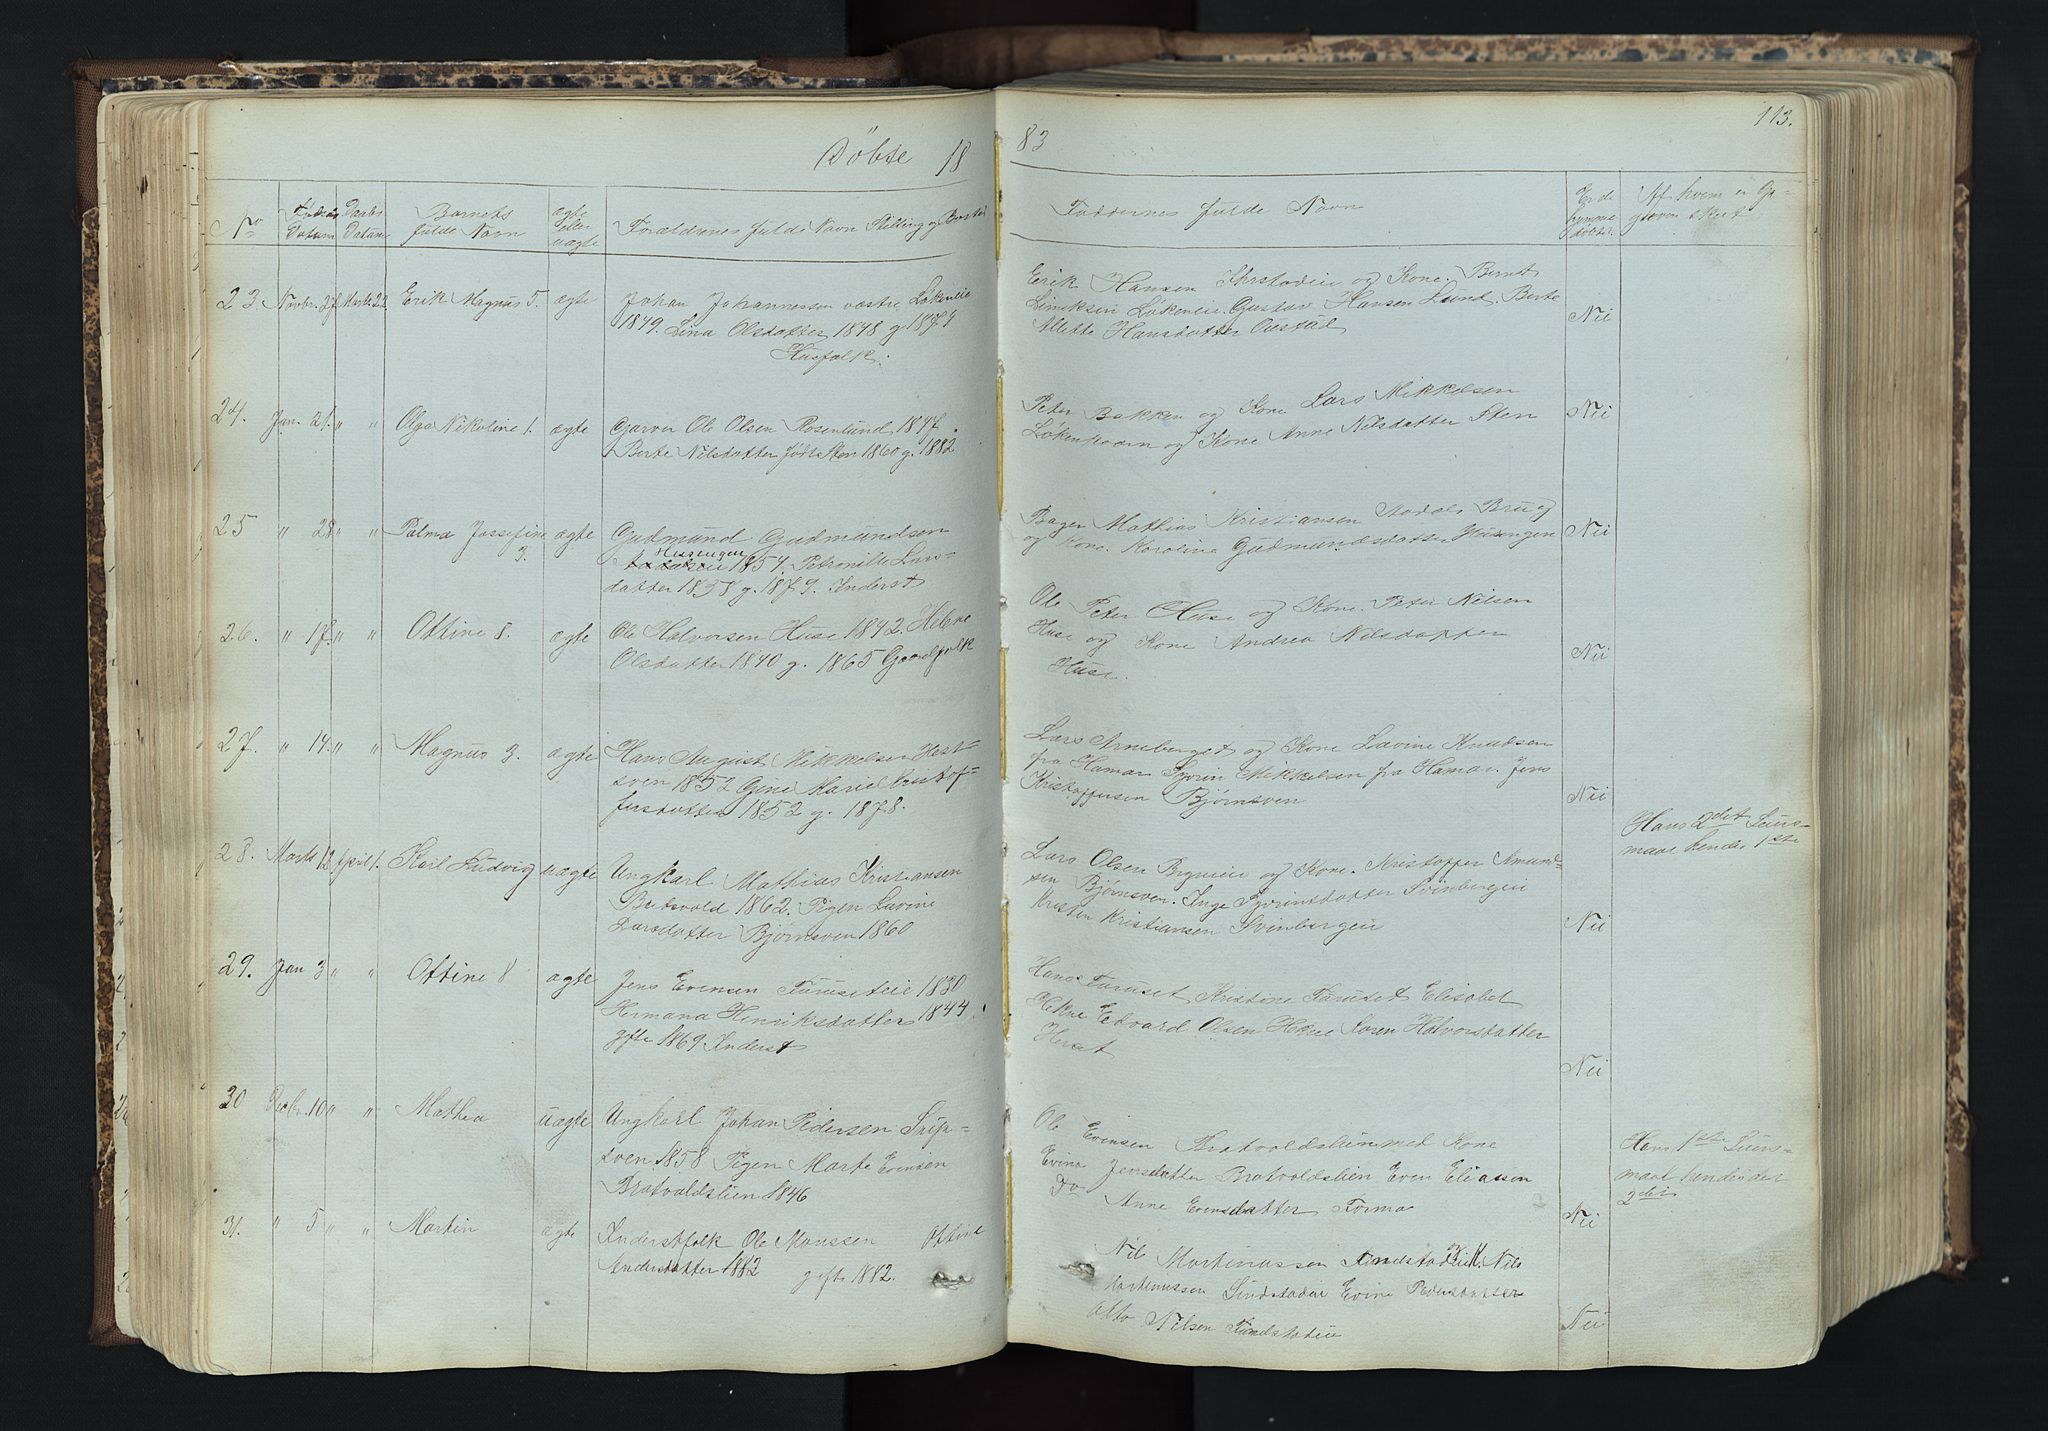 113.
Döbte 18
83
No
Födsels Datum
Daabs Datum
Barnets fulde Navn
ægte eller uægte
Forældrenes fulde Navn Stilling og Bosted
Faddernes fulde Navn
Er de hjemmedöbte
Af hvem er Opgaven skeet
23. Novbr. 27 Marts 22 Erik Magnus 5. ægte Johan Johannessen vestre Løkeneie
1849. Lina Olsdatter 1848 g 1874
Husfolk.
Erik Hansen og Kone. Bernt
Løkeneie. Gustav Hansen Lund. Berte
Mette Hansdatter
Nei
24. Jan. 21. " " Olga Nikoline 1. ægte Garver Ole Olsen Rosenlund 1847.
Berte Nilsdatter født Sten 1860 g. 1882
Peter Bakken og Kone Lars Mikkelsen
og Kone Anne Nilsdatter Sten
Nei
25 " 28 " " Palma Jossefine 3. ægte Gudmund Gudmundsen
1854. Petronille Lars-
datter 1858 g. 1879. Inderst
Bager Mathias Kristiansen Aadals Brug
og Kone. Karoline Gudmundsdatter
Nei
26. " 17. " " Ottine 8. ægte Ole Halvorsen Huse 1842. Helene
Olsdatter 1840 g. 1865 Gaardfolk
Ole Peter Huse og Kone. Peter Nilsen
Huse og Kone Andrea Nilsdatter
Huse.
Nei
27. " 14. " " Magnus 3. ægte Hans August Mikkelsen Hest-
sven 1852 Gine Marie Kristof-
fersdatter 1852 g. 1878.
Lars Arneberget og Kone Lavine Knudsen
fra Hamar Syvrin Mikkelsen fra Hamar. Jens
Kristoffersen Bjørnsven
Nei
28. Marts 12 April 1. Karl Ludvig uægte Ungkarl Mathias Kristiansen
1862. Pigen Lavine
Larsdatter Bjørnsven 1860
Lars Olsen Brynieie og Kone. Kristoffer Amund-
sen Bjørnsven. Inge Syvrinsdatter Svinbergeie
Kristen Kristiansen Svinbergeie
Nei
Hans 2det Leiers-
maal hendes 1ste
29. Jan 3 " " Ottine 8 ægte Jens Evensen Faruseteie 1830
Hermana Henriksdatter 1844
gifte 1869 Inderst
Hans Faruset Kristine Faruset Elisabet
Hekne Edvard Olsen Hekne Karen Halvorsdatter
Nei
30 Decbr. 10 " " Mathea uægte Ungkarl Johan Pedersen Snip-
sven 1858 Pigen Marte Evensen
Bratvoldslien 1846
Ole Evensen Bratvoldslien med Kone
Evine Jensdatter Bratvoldslien Even Eliassen
Do Anne Evensdatter Formo
Nei
Hans 1ste Leiers-
maal hendes det
2det
31. " 5 " " Martin ægte Inderstfolk Ole Monssen Ottine
Andersdatter 1882 gift 1882.
Nils Martinussen Nils
Martinussen Lindstadeie Evine Pedersdatter
Otto Nilsen
Nei